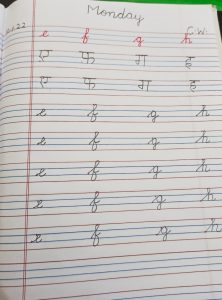 Monday
C.W.
e f g h
ए फ ग ह
ए फ ग ह
e f g h
e f g h
e f g h
e f g h
e f g h